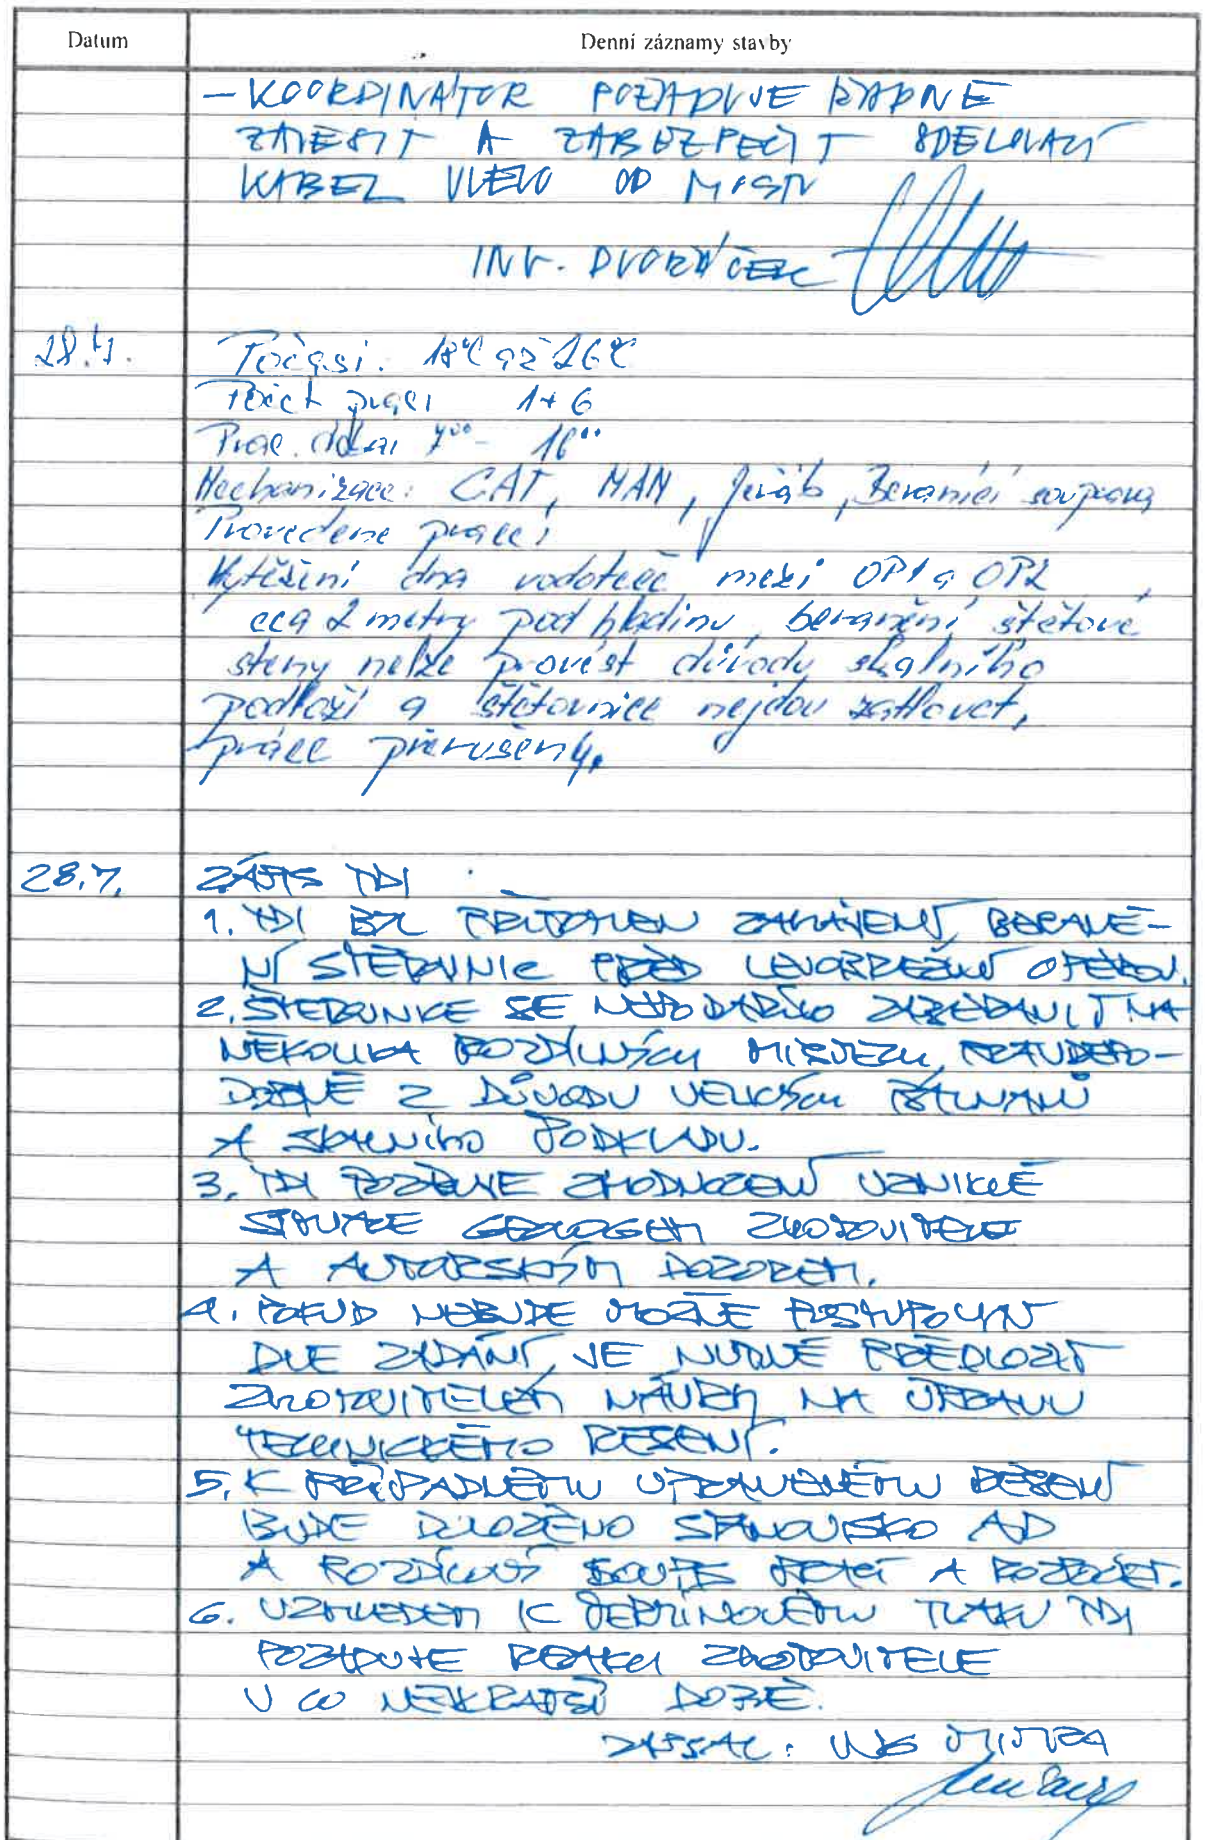 Datum Denní záznamy stavby
- KOORDINÁTOR POŽADUJE ŘÁDNĚ
ZAVĚSIT A ZABEZPEČIT SDĚLOVACÍ
KABEL VLEVO OD MOSTU
ING. DVOŘÁČEK
28.7. Počasí: 18°C až 26°C
Počet prac 1+6
Prac. doba 7°° - 16°°
Mechanizace: CAT, MAN, jeřáb, Beranící souprava
Provedene prace:
Vytěžení dna vodoteče mezi OP1 a OP2,
cca 2 metry pod hladinu, beranění štětové
steny nelze provést důvody skalního
podloží a štětovnice nejdou zatlouct,
práce přerušeny.
28.7. ZÁPIS TDI
1. TDI BYL PŘÍTOMEN ZAHÁJENÍ BERANĚ-
NÍ ŠTĚTOVNIC PŘED LEVOBŘEŽNÍ OPĚROU.
2. ŠTĚTOVNICE SE NEPODAŘILO ZABERANIT NA
NĚKOLIKA ROZDÍLNÝCH MÍSTECH, PRAVDĚPO-
DOBNĚ Z DŮVODU VELKÝCH BALVANŮ
A SKALNÍHO PODKLADU.
3. TDI POŽADUJE ZHODNOCENÍ VZNIKLÉ
SITUACE GEOLOGEM ZHOTOVITELE
A AUTORSKÝM DOZOREM.
4. POKUD NEBUDE MOŽNÉ POSTUPOVAT
DLE ZADÁNÍ, JE NUTNÉ PŘEDLOŽIT
ZHOTOVITELEM NÁVRH NA ÚPRAVU
TECHNICKÉHO ŘEŠENÍ.
5. K PŘÍPADNÉMU UPRAVENÉMU ŘEŠENÍ
BUDE DOLOŽENO STANOVISKO AD
A ROZDÍLOVÝ SOUPIS PRACÍ A ROZPOČET.
6. VZHLEDEM K TERMÍNOVÉMU TLAKU TDI
POŽADUJE REAKCI ZHOTOVITELE
V CO NEJKRATŠÍ DOBĚ.
ZAPSAL: ING